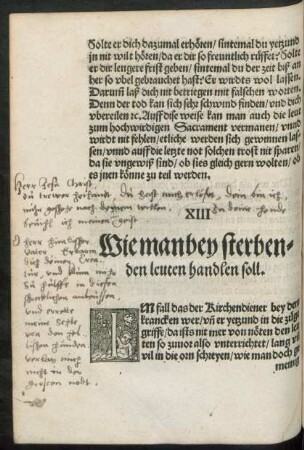 Solte er dich dazumal erhören / sintemal du yetzund
jn nit wilt hören / da er dir so freuntlich rüffet? Solte
er dir lengere frist geben / sintemal du der zeit biß an
her so vbel gebrauchet hast? Er wurdts wol lassen.
Darumb laß dich nit betriegen mit falschen worten.
Denn der tod kan sich sehr schwind finden / vnd dich
vbereilen ꝛc. Auff dise weise kan man auch die leut
zum hochwirdigen Sacrament vermanen / vnnd
wirdt nit fehlen / etliche werden sich gewinnen las-
sen / vnnd auff die letzte not solchen trost nit sparen /
da sie vngewiß sind / ob sies gleich gern wolten / ob
es jnen könne zu teil werden.
Herr Jesu Christ,
du hast mich erlöset, dein bin ich,
In deine hende
XIII
Wie man bey sterben-
den leuten handlen soll.
O herr himlischer
vater Erbarm
dich deiner Crea-
tur, und kum mir
zu hülffe in disen
und errette
meine Seele,
von allen
sünden.
nicht in der
grossen noht.
IM fall das der Kirchendiener bey dẽ
krancken wer / vñ er yetzund in die zülgẽ
griffe / da ists nit mer von nöten den leu
ten so zuuor also vnterrichtet / lang vñ
vil in die orn schreyen / wie man doch ge
meinig